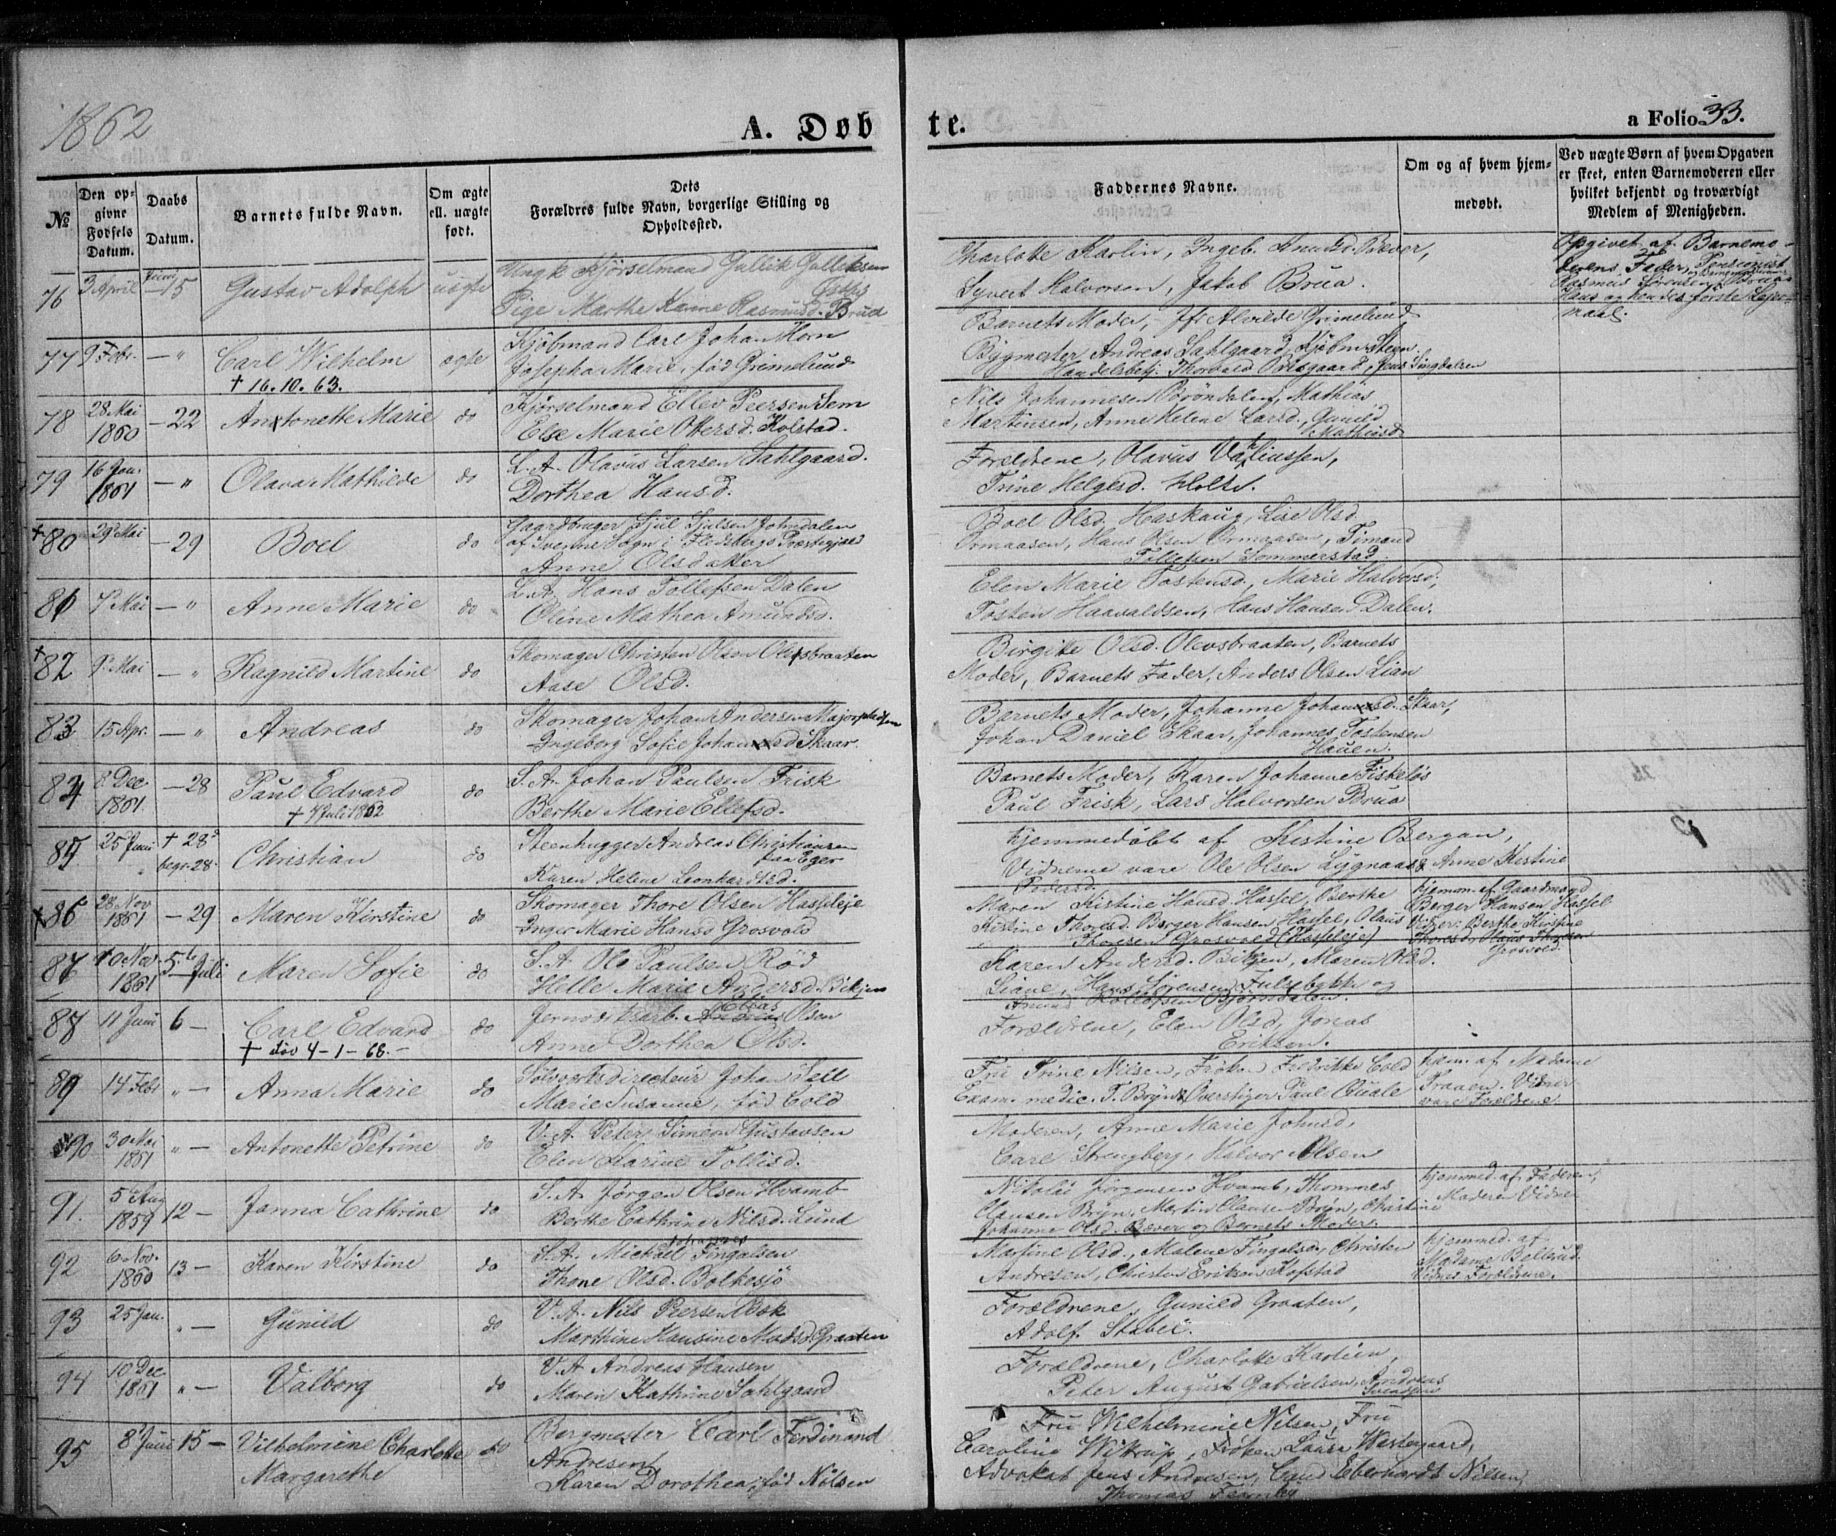 1862
A. Døbte.
a Folio 33.
№
Den opgivne Fødsels Datum.
Daabs Datum.
Barnets fulde Navn.
Om ægte ell. uægte født.
Dets Forældres fulde Navn, borgerlige Stilling og Opholdssted.
Faddernes Navne.
Om og af hvem hjemmedøbt.
Ved uægte Børn af hvem Opgaven er skeet, enten Barnemoderen eller hvilket bekjendt og troværdigt Medlem af Menigheden.
76 3 April Juni 15 Gustav Adolph uægte Ungk. Kjørselmand Gullik Gulliksen
Pige Marthe Karine Rasmusd. Brud
Charlotte Karlin, Ingeb. Knudsd. Bæver,
Syvert Halvorsen, Jakob Brua.
Opgivet af Barnemoderens Fader, Pensionist
Rasmus Sørensen
Hans og hendes første Leiermaal.
77 9 Febr. — " Carl Wilhelm ægte Kjøbmand Carl Johan Horn
† 16.10.63. Josepha Marie, fød Grimelund
Barnets Moder, Jfr. Alvilde Grimelund
Bygmester Andreas Sahlgaard, Kjøbm. Steen,
Handelsbetj. Thorvald Ødegaard, Jens Tingdalsen
78 28 Mai 1860 — 22 Antonette Marie do Kjørselmand Ellev Peersen Sem
Else Marie Ottersd. Kolstad.
Nils Johannesen Børøndalen, Mathias
Martinsen, Anne Helene Larsd., Gunild
Mathiasd.
79 16 Jan. 1861 — " Olava Mathilde do L.A. Olavus Larsen Sahlgaard.
Dorthea Hansd.
Forældrene, Olavus Valiussen,
Trine Helgesd. Holte.
† 80 29de Mai — 29 Boel do Gaardbruger Sjul Sjulsen Johndalen
af Svenne Sogn i Flesbergs Præstegjæld
Anne Olsdatter
Boel Olsd. Haskaug, Lise Olsd.
Ormaasen, Hans Olsen Ormaasen, Timand
Tollefsen Sommerstad.
81 7 Mai — " Anne Marie do L.A. Hans Tollefsen Dalen
Oline Mathea Amundsd.
Elen Marie Tostensd., Marie Halvorsd.,
Tosten Haavaldsen, Hans Hansen Dalen.
† 82 1 Mai — " Ragnild Martine do Skomager Christen Olsen Olevsbraaten
Aase Olsd.
Birgitte Olsd. Olevsbraaten, Barnets
Moder, Barnets Fader, Anders Olsen Lian
83 15 Apr. — " Andreas do Skomager Johan Andersen Majorpladsen
Ingeborg Sofie Johansd. Skaar.
Barnets Moder, Johanne Johansd. Skaar,
Johan Daniel Skaar, Johannes Tostensen
Hauen.
84 8 Dec 1861. — 28 Paul Edvard do S.A. Johan Paulsen Frisk
† 4 Juli 1862 Berthe Marie Ellefsd.
Barnets Moder, Karen Johanne Fiskeløs
Paul Frisk, Lars Halvorsen Brua
85 25 Juni † 28d begr. 28. Christian do Steenhugger Andreas Christiansen
paa Eger
Karen Helene Leonhardtsd.
Hjemmedøbt af Kistine Bergan,
Vidnerne vare Ole Olsen Lygnaas & Anne Kistine
Pedersd.
86 28 Nov 1861 — 29 Maren Kirstine do Skomager Thore Olsen Hasseleje
Inger Marie Hansd Grosvold
Maren Kistine Hansd. Hassel, Berthe
Kistine Thoresd. Berger Hansen Hassel, Olaus
Thoresen Grosvold (Hasseleje)
hjemm. af Gaardmand
Berger Hansen Hassel
Vidner: Berthe Kirstine
Thoresd., Olaus Thoresen
Grosvold
87 10 Nov. 1861 5te Juli Maren Sofie do S.A. Ole Paulsen Rød
Helle Marie Andersd. Bikjen
Karen Andersd. Bikjen, Maren Olsd.
Liane, Hans Sørensen Fulsebakke og
Amund Tollefsen Bjørndalen.
88 11 Juni 6 — Carl Edvard do Jernværksarb. Elias Olsen
† död 4-1-68.— Anne Dorthea Olsd.
Forældrene, Elen Olsd, Jonas
Eriksen.
89 14 Feb. " — Anna Marie do Sølvværksdirecteur Johan Sell
Marie Susanne, fød Cold
Fru Trine Nilsen, Frøken Fredrikke Cold
Exam. medic. F. Brynd, Overstiger Paul Quale
hjem. af Madame
Praaen. Vidner
vare Forældrene.
90 30 Mai 1861 " — Antonette Petrine do V.A. Peter Simen Gustavsen
Elen Karine Tollisd.
Moderen, Anne Marie Johnsd,
Carl Strengberg, Halvor Olsen
91. 5 Aug 1859 12 — Janna Cathrine do S.A. Jørgen Olsen Hvamb
Berthe Cathrine Nilsd. Lund
Nikolai Jørgensen Hvamb, Thommes
Clausen Brøn, Martin Clausen Brøn, Christine
Johanne Olsd. Bæver og Barnets Moder.
hjemmed. af Faderen,
Moderen Vidne
92 6 Nov. 1860 13 — Karen Kirstine do S.A. Mickael Johannes Fingalsen
Thone Olsd. Bolkesjø
Martine Olsd., Malene Fingalsd., Christen
Andresen, Christen Eriksen Hofstad
hjemmed. af
Madame Bellerud.
Vidner Forældrene.
93 25 Jan. " — Gunild do V.A. Nils Peersen Bok
Marthine Hansine Madsd. Graaten
Forældrene, Gunild Graaten,
Adolf Stabel.
94 10 Dec 1861 " — Valborg do V.A. Andreas Hansen
Maren Kathrine Sahlgaard
Forældrene, Charlotte Karlien,
Peter August Gabrielsen, Andreas
Svendsen
95 8 Juni 15 — Vilhelmine Charlotte do Bergmester Carl Ferdinand
Margarethe Andresen,
Karen Dorothea, fød Nilsen
Fru Wilhelmine Nilsen, Fru
Caroline Witrup, Frøken Laura Westergaard,
Advokat Jens Andresen, Cand Eberhardt Nilsen,
Thomas Fearnley